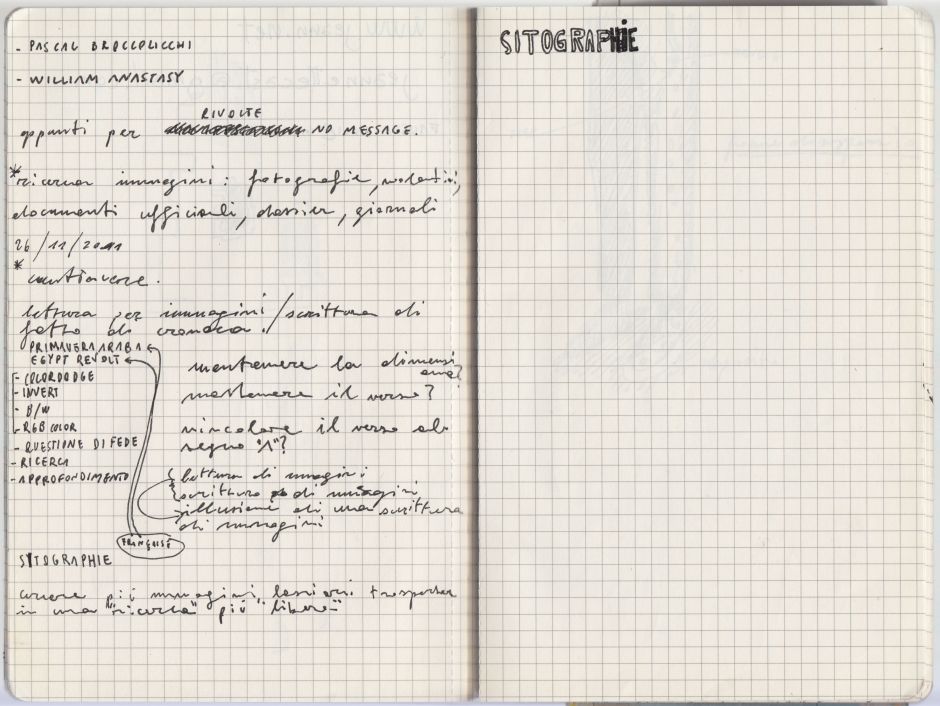 - PASCAL BROCCOLICCHI
- WILLIAM ANASTASY
RIVOLTE
appunti per NO MESSAGE.
*ricerca immagini: fotografie, volantini,
documenti ufficiali, dossier, giornali
26/11/2011
*
continuare.
lettura per immagini/scrittura di
fatto di cronaca.
PRIMAVERA ARABA
EGYPT REVOLT
- COLORDODGE
- INVERT
- B/W
- RGB COLOR
- QUESTIONE DI FEDE
- RICERCA
- APPROFONDIMENTO
mantenere la dimensi
one?
mantenere il verso?
vincolare il verso al
segno "1"?
lettura di imagini
scrittura di imagini
illusione di una scrittura
di immagini
FRANÇAISE
SITOGRAPHIE
più immagini, lasciarsi trasportare
in una "ricerca" più "libera"
SITOGRAPHIE